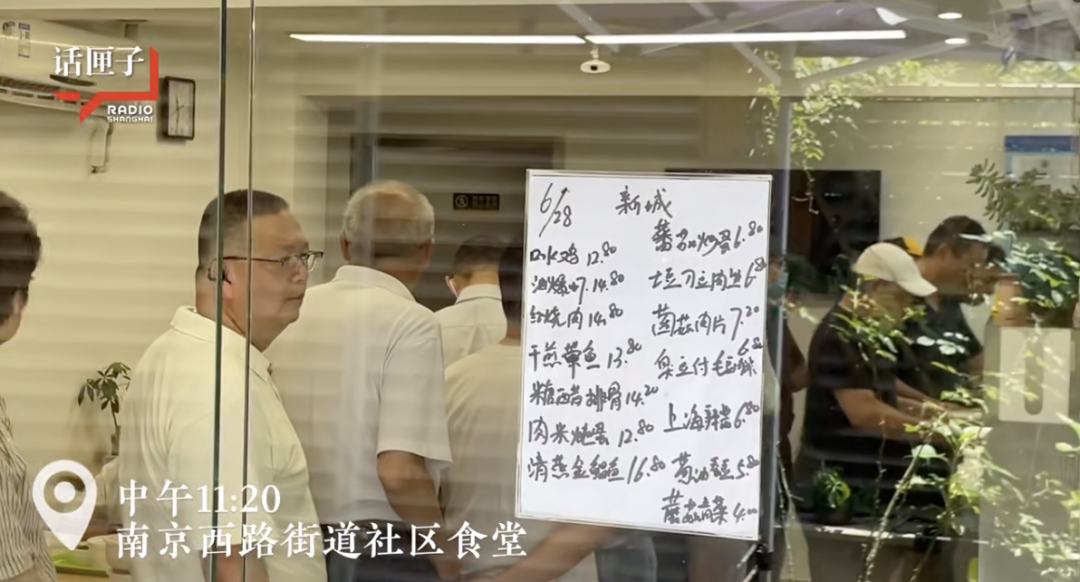 话匣子
RADIO
SHANGHAI
6/28 新城
口水鸡 12.80
油爆虾 14.80
红烧肉 14.80
干煎带鱼 13.80
糖醋排骨 14.20
肉米炖蛋 12.80
清蒸金鲳鱼 16.80
蕃茄炒蛋 6.80
土豆刀豆肉丝 6.80
菌菇肉片 7.20
臭豆付毛豆 6.80
上海辣酱 6.80
葱油 5.80
蘑菇青菜 4.00
中午11:20
南京西路街道社区食堂